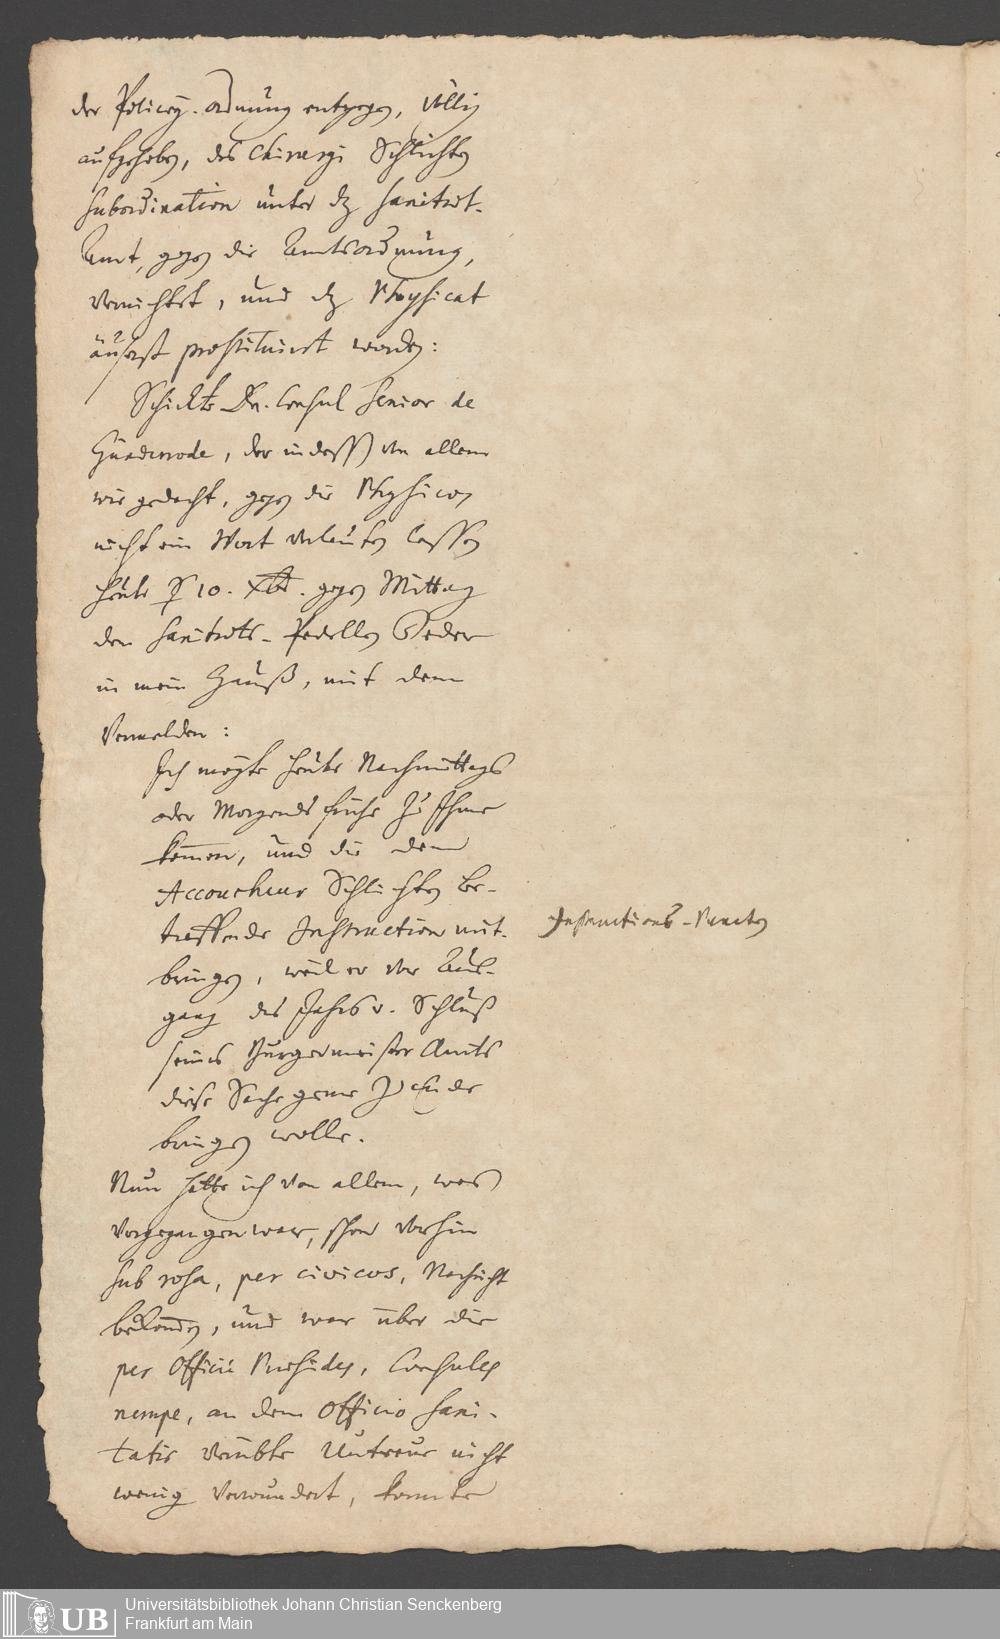 der Policey-Ordnung entgegen, völlig
aufgehoben, des Chirurgi Schlichten
Subordination unter dz Sanitæt-
Amt, gegen die Amtsordnung,
vernichtet, und dz Physicat
äuserst prostituirt worden:
Schickte Dn. Consul Senior de
Günderrode, der indessen von allem
wie gedacht, gegen die Physicos
nicht ein Wort verlauten lassen
heute 10. Xbr. gegen Mittag
den Sanitæts-Pedellen Oeder
in mein Hauß, mit dem
Vermelden:
Ich mögte heute Nachmittags
oder Morgends frühe zu Ihme
kommen, und die dem
Accoucheur Schlichten be-
treffende Instruction mit-
bringen, weil er vor Aus-
gang des Jahrs v. Schluß
seines Burgermeister Amts
diese Sache gerne zu Ende
bringen wolle.
Instructions-Puncten
Nun hatte ich von allem, was
vorgegangen war, schon vorhin
sub rosa, per civicos, Nachricht
bekommen, und war über die
per Officii Præsides, Consules
nempe, an dem Officio Sani-
tatis verübte Untreue nicht
wenig verwundert, konnte
UB
Universitätsbibliothek Johann Christian Senckenberg
Frankfurt am Main